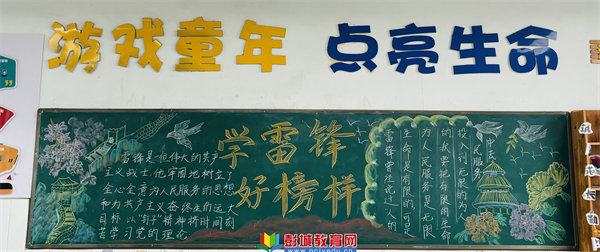 游戏童年 点亮生命
学雷锋
好榜样
雷锋是位伟大的共产
主义战士,他牢固地树立了
全心全意为人民服务的思想
和为共产主义奋终生的远大
目标以"钉子"精神将时间刻
苦学习党的理论
雷锋曾经说过人的
生命是有限的,可是
为人民服务是无限
的,我要把有限的生命
投入到无限的为人
民服务
中去
彭城教育网